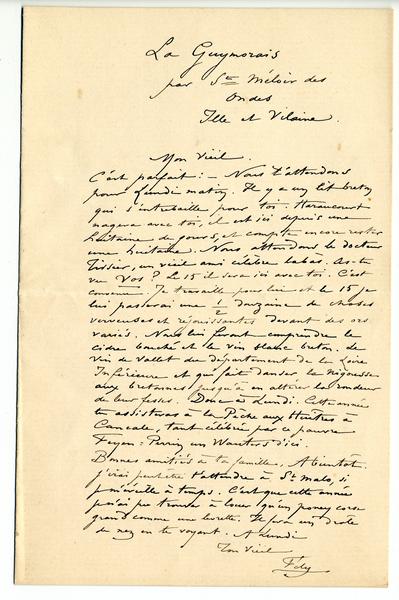 La Guymorais
par Ste Méloir des
Ondes
Ille et Vilaine.
Mon vieil.
C'est parfait : — Nous t'attendons
pour Lundi matin. Il y a un lit breton
qui s'entrebaille pour toi. Haraucourt
nagera avec toi, il est ici depuis une
huitaine de jours, et compte encore rester
une huitaine. Nous attendons le docteur
Tissier, un vieil ami célèbre labas. As-tu
vu Vos ? Le 15 il sera ici avec toi. C'est
convenu. Je travaille pour lui et le 15 je
lui passerai une ½ douzaine de choses
verveuses et réjouissantes devant des
variés. Nous lui ferons comprendre le
cidre bouché et le vin blanc breton, le
vin de Vallet du département de la Loire
Inférieure et qui fait danser la
aux bretonnes jusqu'à en altérer la rondeur
de leurs fesses. Donc à Lundi. Cette année
tu assisteras à la Pêche aux Huîtres à
Cancale, tant célébrée par ce pauvre
Feyen-Perrin, un Wauters d'ici.
Bonnes amitiés à ta famille. A bientôt.
J'irai peut être t'attendre à St Malo, si
je m'éveille à temps. C'est que cette année
je n'ai pu trouver à louer qu'un poney corse
grand comme une levrette. Il fera un drôle
de nez en te voyant. A Lundi
Ton vieil
Fély